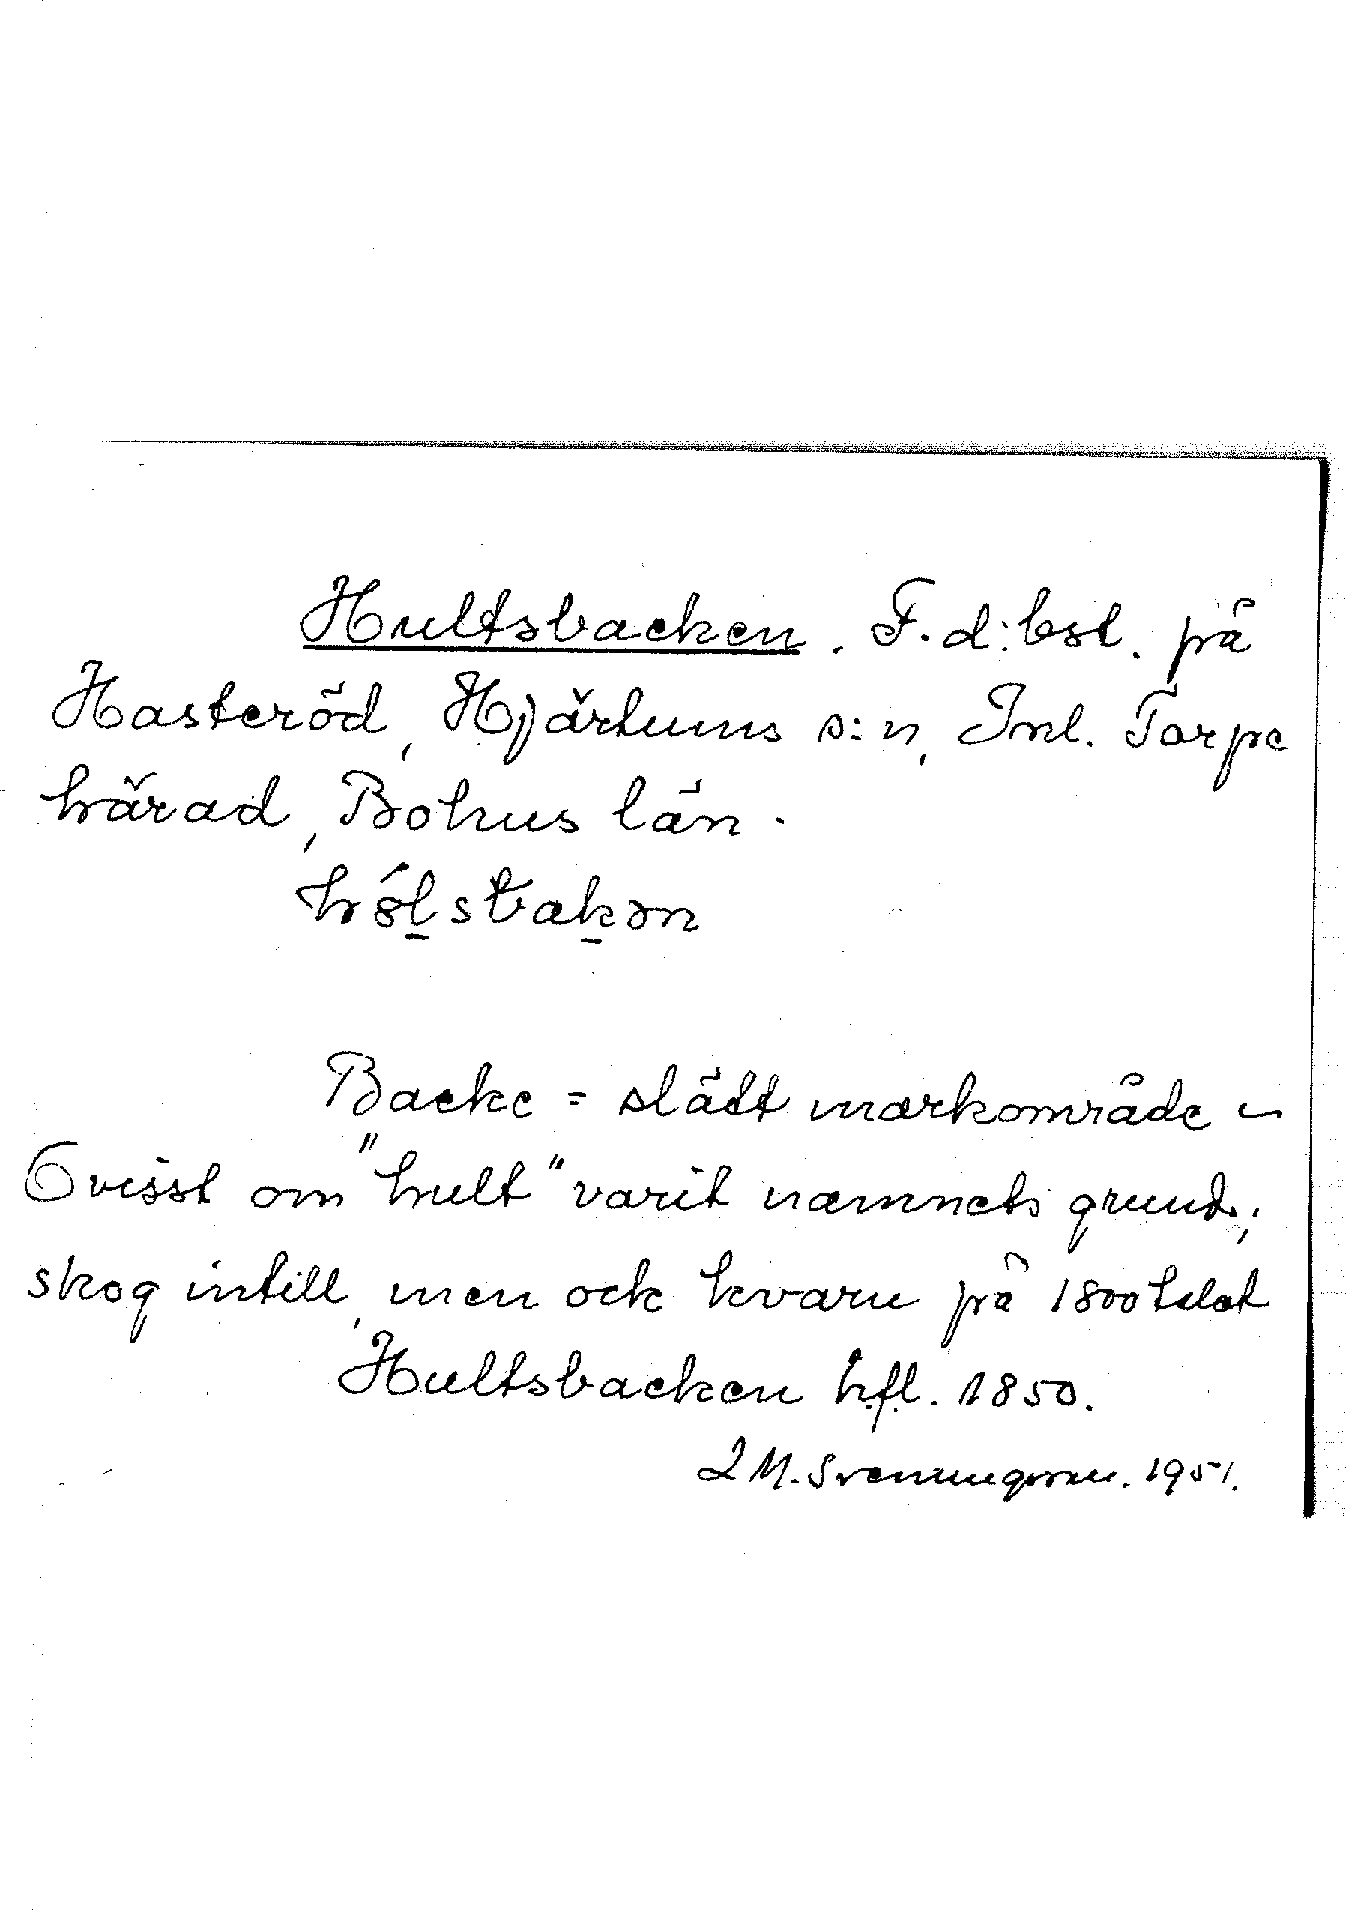 Hultsbacken. F. d: bst. på
Hasteröd, Hjärtums s:n, Inl. Torpe
härad, Bohus län.
Backe = slätt markområde -
Ovisst om "hult" varit namnets grund;
skog intill, men ock kvarn på 1800 talet
Hultsbacken hfl. 1850.
2 M. Svenningsson. 1951.